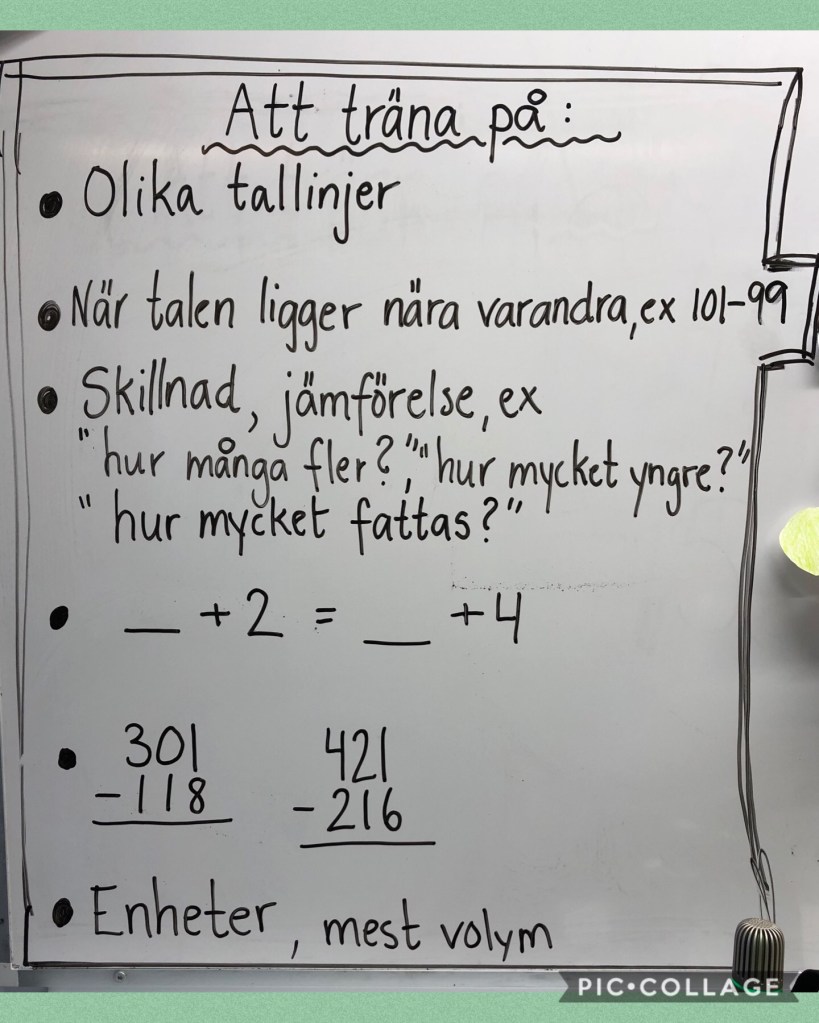 Att träna på:
• Olika tallinjer
• När talen ligger nära varandra, ex 101-99
• Skillnad, jämförelse, ex
"hur många fler?", "hur mycket yngre?"
"hur mycket fattas?"
• __ + 2 = __ + 4
• 301 421
-118 -216
• Enheter, mest volym
PIC•COLLAGE